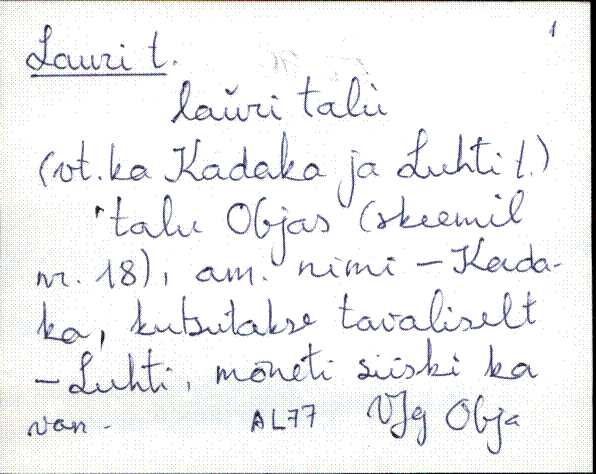 1
Lauri t.
laŭri talù
(vt. ka Kadaka ja Luhti t.)
talu Objas (skeemil
nr. 18), am. nimi - Kada-
ka, kutsutakse tavaliselt
- Luhti, mõneti siiski ka
van- AL77 VJg Obja